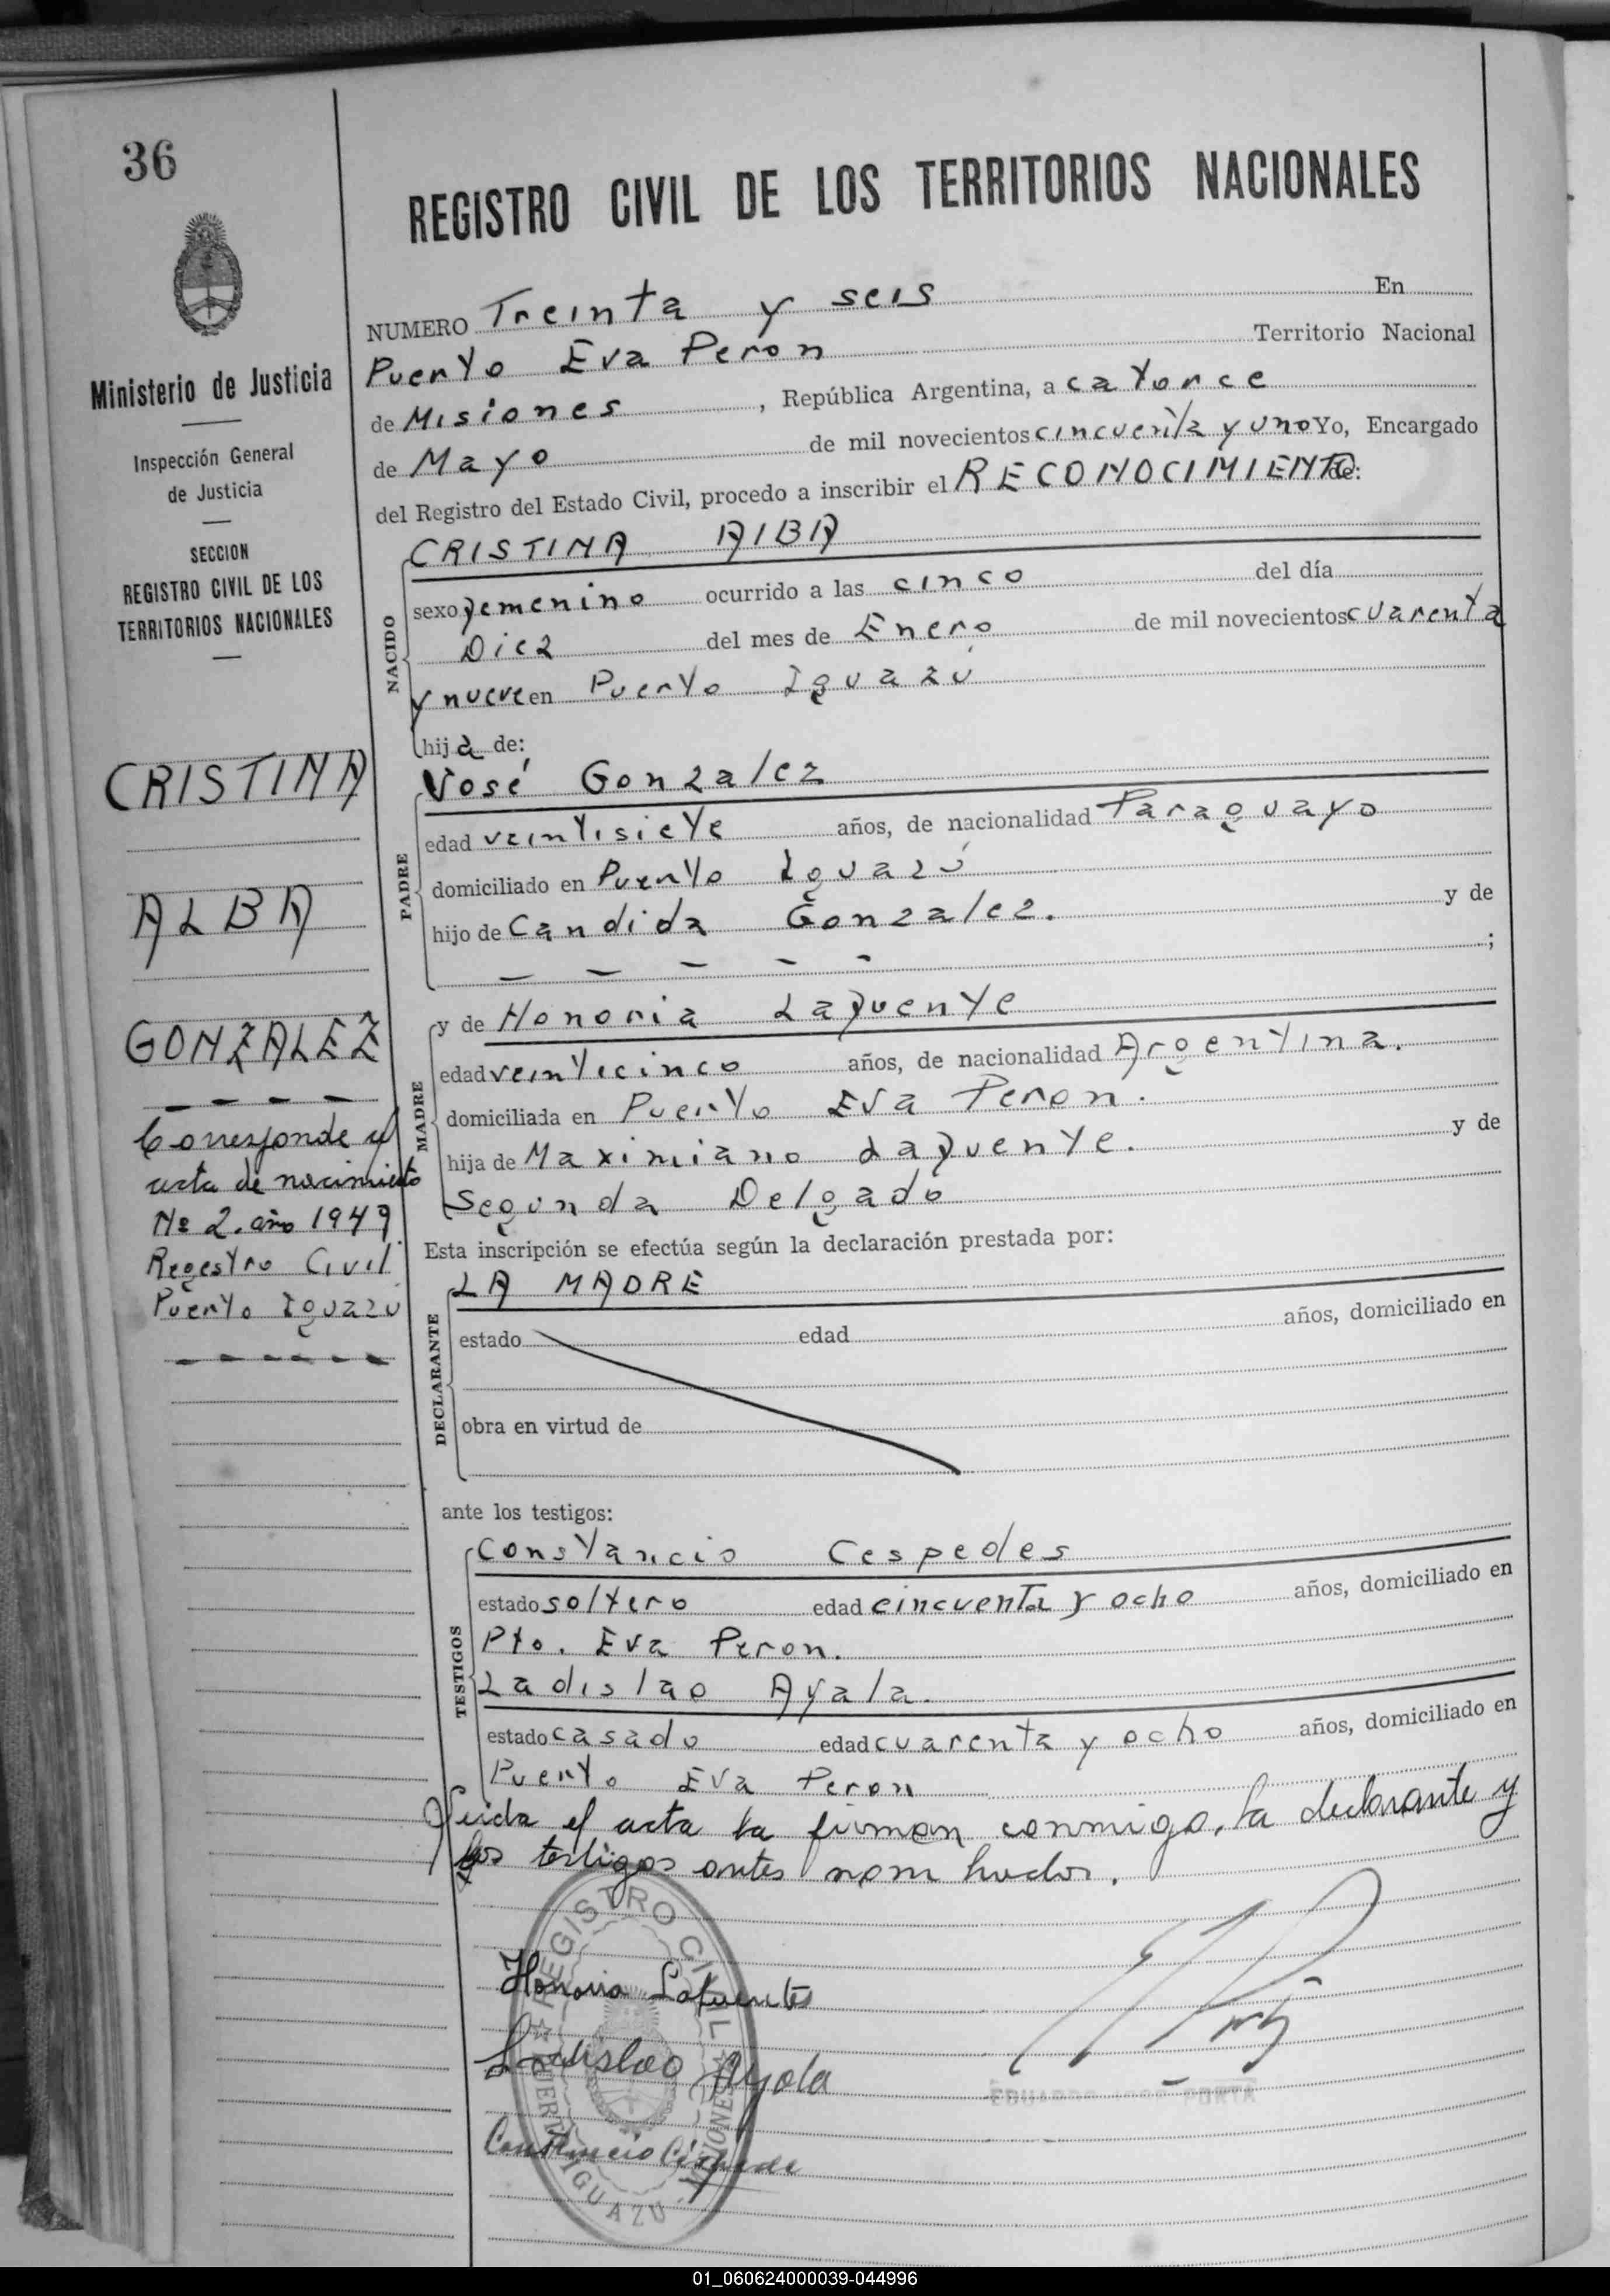 36
Ministerio de Justicia
Inspección General
de Justicia
SECCION
REGISTRO CIVIL DE LOS
TERRITORIOS NACIONALES
CRISTINA
ALBA
GONZALEZ
Corresponde al
acta de nacimiento
Nº 2. año 1949
Registro Civil
Puerto Iguazú
REGISTRO CIVIL DE LOS TERRITORIOS NACIONALES
NUMERO Treinta y seis En
Puerto Eva Peron Territorio Nacional
de Misiones, República Argentina, a catorce
de Mayo de mil novecientos cincuenta y uno Yo, Encargado
del Registro del Estado Civil, procedo a inscribir el RECONOCIMIENTO de:
NACIDO
CRISTINA AlBA
sexo femenino ocurrido a las cinco del día
Diez del mes de Enero de mil novecientos cuarenta
y nueve en Puerto Iguazú
hija de:
PADRE
José Gonzalez
edad veintisiete años, de nacionalidad Paraguayo
domiciliado en Puerto Iguazú
hijo de Candida Gonzalez. y de
— — — — — ;
MADRE
y de Honoria Lafuente
edad veinticinco años, de nacionalidad Argentina.
domiciliada en Puerto Eva Peron.
hija de Maximiano Lafuente. y de
Segunda Delgado
Esta inscripción se efectúa según la declaración prestada por:
DECLARANTE
LA MADRE
estado edad años, domiciliado en
obra en virtud de
ante los testigos:
TESTIGOS
Constancio Cespedes
estado soltero edad cincuenta y ocho años, domiciliado en
Pto. Eva Peron.
Ladislao Ayala.
estado casado edad cuarenta y ocho años, domiciliado en
Puerto Eva Peron
Leida el acta la firman conmigo, la declarante y
los testigos antes nombrados.
REGISTRO CIVIL
IGUAZU MISIONES
Honoria Lafuente
Ladislao Ayala
Constancio Céspede
EDUARDO JOSE PORTA
01_060624000039-044996